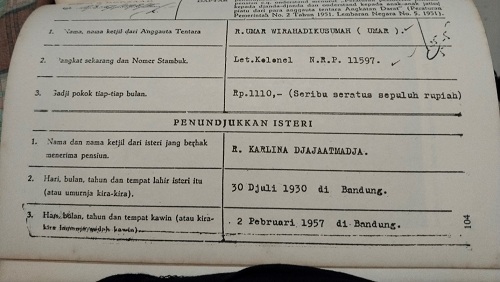 DAFTAR
kepada djanda-djanda dan kepada anak-anak jatim
piatu dari para anggauta tentara Angkatan Darat" (Peraturan
Pemerintah No. 2 Tahun 1951, Lembaran Negara No. 5, 1951).
1. Nama, nama ketjil dari Anggauta Tentara
R.UMAR WIRAHADIKUSUMAH ( UMAR ).
2. Pangkat sekarang dan Nomer Stambuk.
Let.Kolonel N.R.P. 11597.
3. Gadji pokok tiap-tiap bulan.
Rp.1110,- (Seribu seratus sepuluh rupiah)
PENUNDJUKKAN ISTERI
1. Nama dan nama ketjil dari isteri jang berhak
menerima pensiun.
R. KARLINA DJAJAATMADJA.
2. Hari, bulan, tahun dan tempat lahir isteri itu
(atau umurnja kira-kira).
30 Djuli 1930 di Bandung.
3. Hari, bulan, tahun dan tempat kawin (atau kira-
kira lamanja sudah kawin).
2 Pebruari 1957 di Bandung.
104